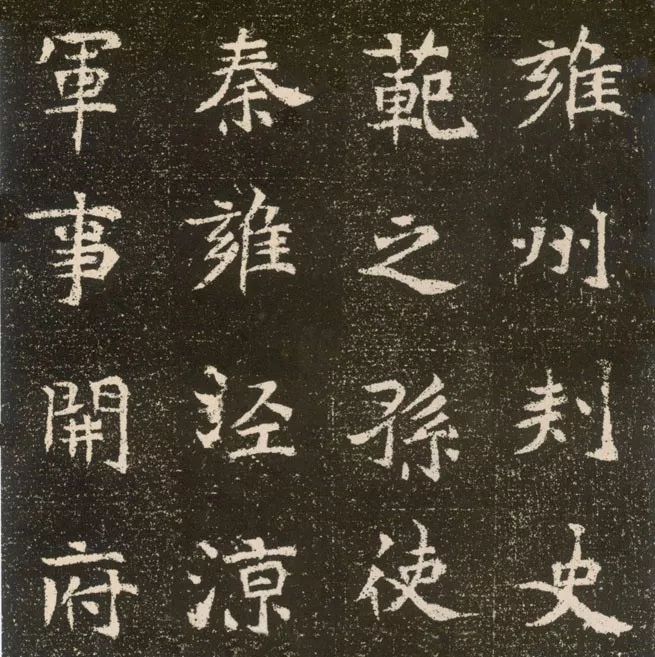 雍州刺史
範之孫使
秦雍泾涼
軍事開府